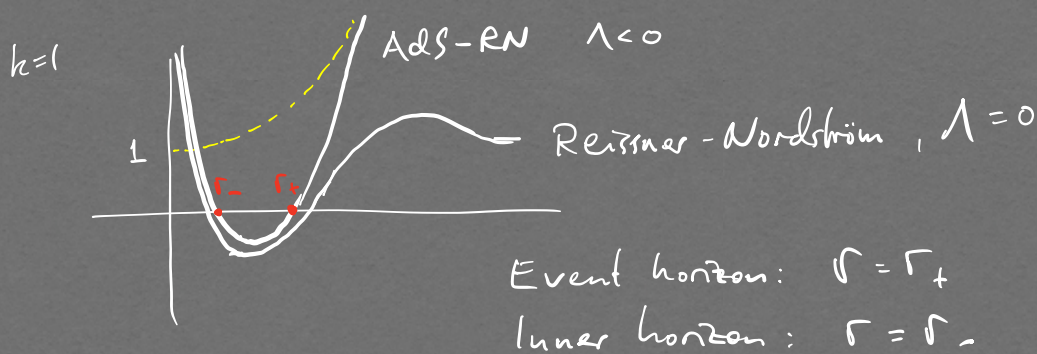 k=1
AdS-RN Λ<0
1
r₋ r₊
Reissner-Nordström, Λ=0
Event horizon: r=r₊
Inner horizon: r=r₋